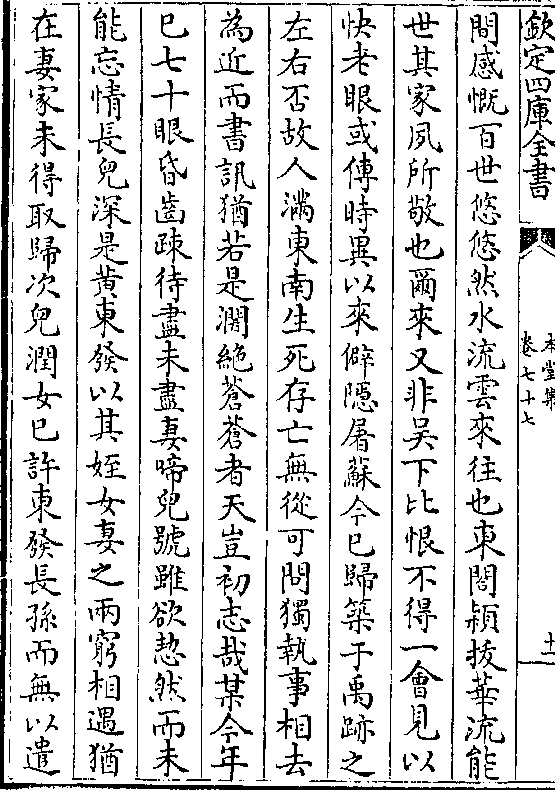 欽定四庫全書
本堂集
卷七十七
十一
間感慨百世悠悠然水流雲來往也東閣穎拔華流能
世其家夙所敬也爾來又非吳下比恨不得一會見以
快老眼或傳時異以來僻隱屠蘇今已歸築于禹跡之
左右否故人滿東南生死存亡無從可問獨執事相去
為近而書訊猶若是濶絶蒼蒼者天豈初志哉某今年
已七十眼昏齒疎待盡未盡妻啼兒號雖欲恝然而未
能忘情長兒深是黄東發以其姪女妻之兩窮相遇猶
在妻家未得取歸次兒潤女已許東發長孫而無以遣